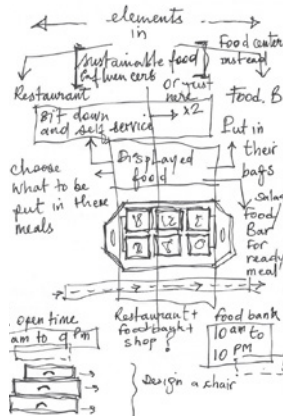 elements
in
sustainable food
Food center
instead
Restaurant
or just
here
Food. B
sit down
and self service
x2
Put in
their
bags
Displayed
food
choose
what to be
put in these
meals
Salad
food/
Bar
for
ready
meal
open time
am to 9 pm
Restaurant +
food bank +
shop ?
food bank
10 am to
10 PM
Design a chair